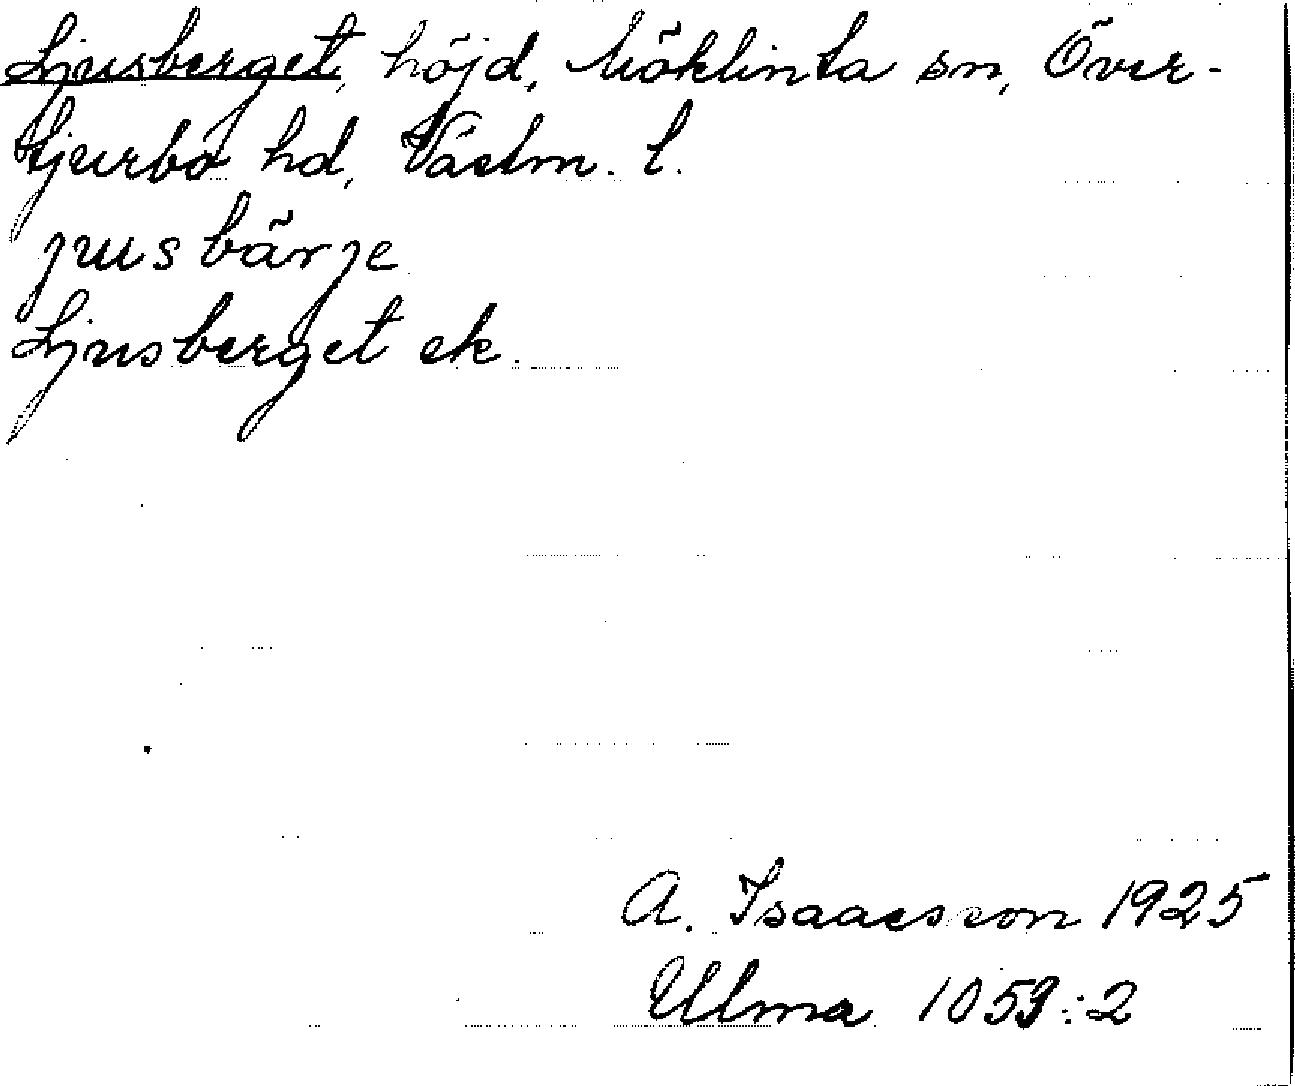 Ljusberget, höjd, Möklinta sn, Över-
tjurbo hd, Västm. l.
jusbärje
Ljusberget ek.
A. Isaacsson 1925
Ulma 1059:2